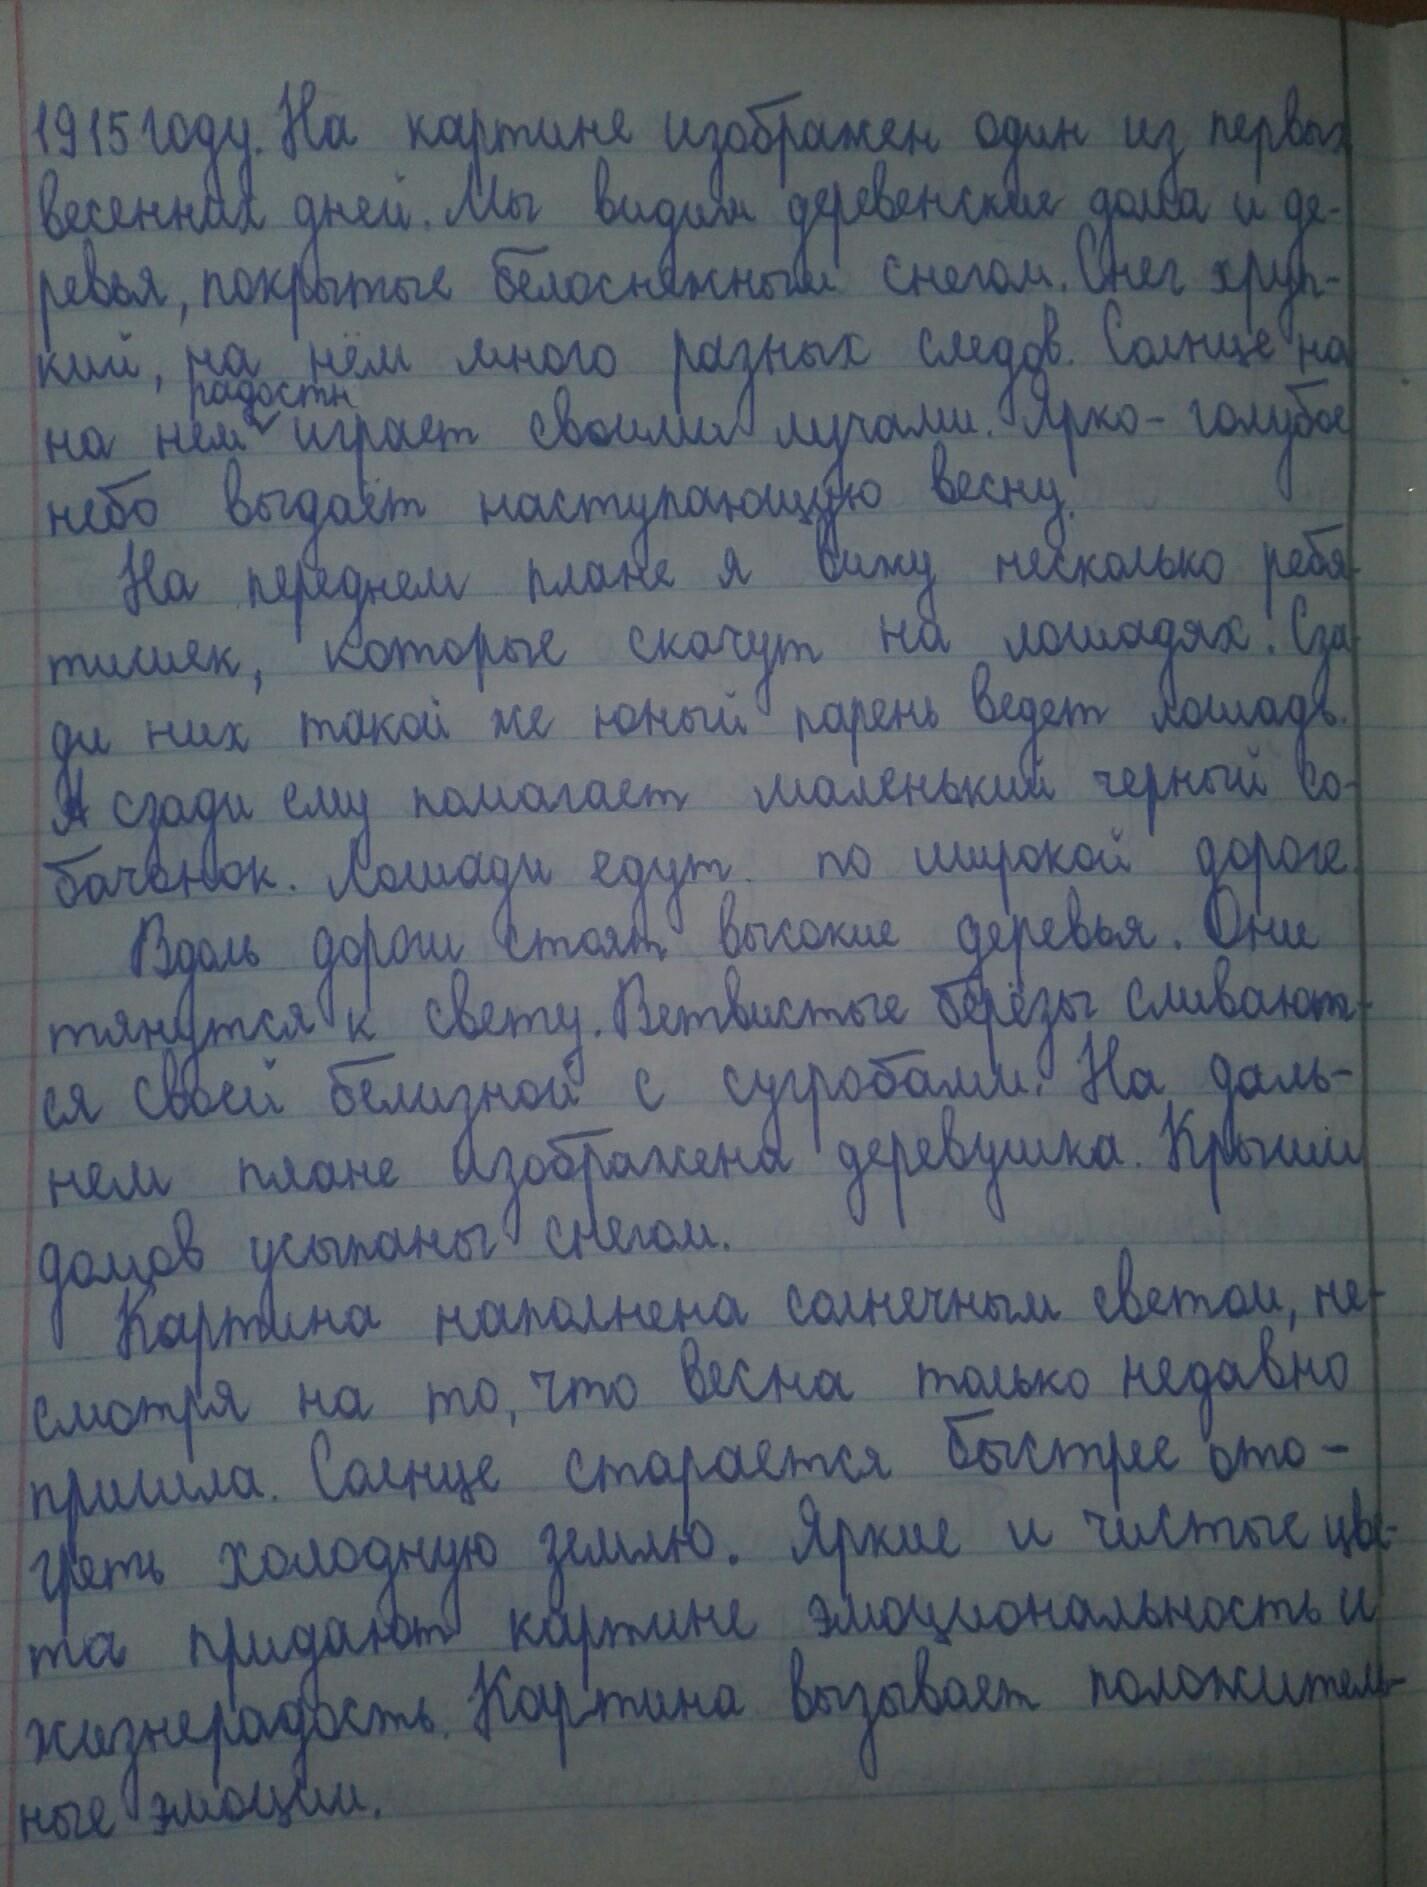 1915 году. На картине изображен один из первых
весенних дней. Мы видим деревенские дома и де-
ревья, покрытые белоснежным снегом. Снег хруп-
кий, на нём много разных следов. Солнце на
радостн
на нем играет своими лучами. Ярко-голубое
небо выдаёт наступающую весну.
На переднем плане я вижу несколько ребя-
тишек, которые скачут на лошадях. Сза-
ди них такой же юный парень ведет лошадь.
А сзади ему помогает маленький черный со-
бачонок. Лошади едут по широкой дороге.
Вдоль дороги стоят высокие деревья. Они
тянутся к свету. Ветвистые берёзы сливают-
ся своей белизной с сугробами. На даль-
нем плане изображена деревушка. Крыши
домов усыпаны снегом.
Картина наполнена солнечным светом, не-
смотря на то, что весна только недавно
пришла. Солнце старается быстрее ото-
греть холодную землю. Яркие и чистые цве-
та придают картине эмоциональность и
жизнерадость. Картина вызывает положитель-
ные эмоции.